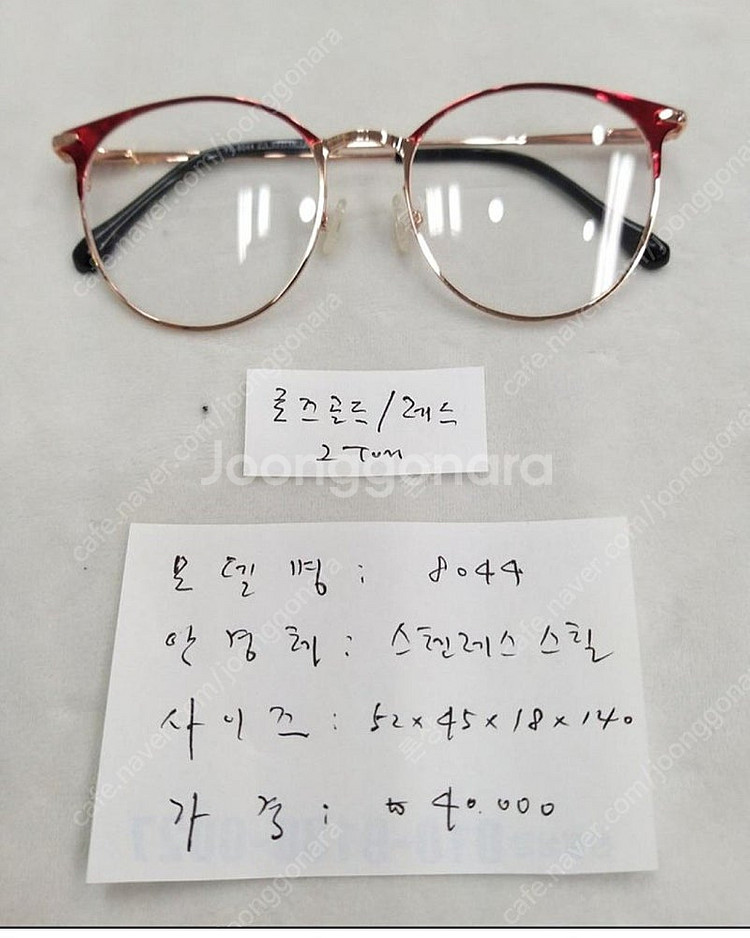 로즈골드/레드
2 Ton
Joonggonara
모델명: 8044
안경체: 스텐레스 스틸
사이즈: 52×45×18×140
가격: ₩40.000
cafe.naver.com/joonggonara